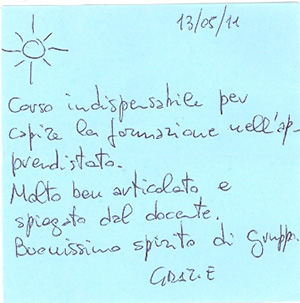 13/05/11
Corso indispensabile per
capire la formazione nell'ap-
prendistato.
Molto ben articolato e
spiegato dal docente.
Buonissimo spirito di gruppo.
GRAZIE